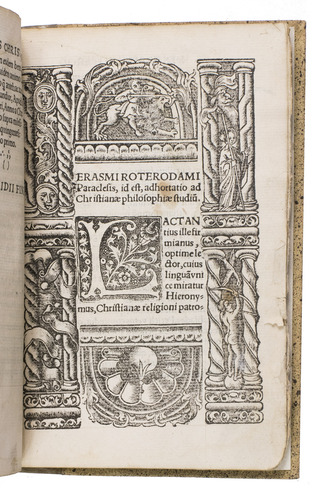 S CHRIS
IDII F
ERASMI ROTERODAMI
Paraclesis, id est, adhortatio ad
Christianæ philosophiæ studiũ.
LACTAN
tius ille fir
mianus,
optime le
ctor, cuius
linguã vni
ce miratur
Hierony-
mus, Christianæ religioni patro-